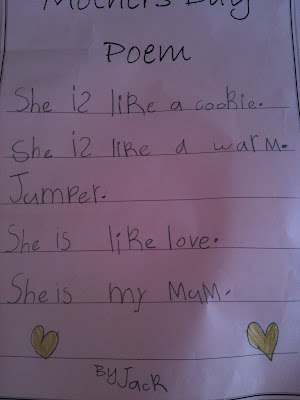 Mothers Day
Poem
She is like a cookie.
She is like a warm.
Jumper.
She is like love.
She is my Mum.
By Jack